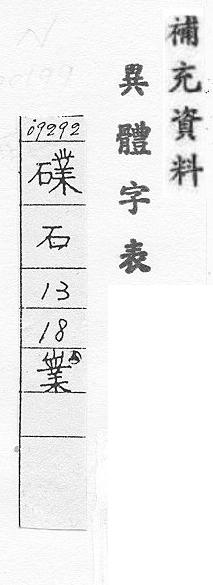 補充資料
異體字表
09292
礏
石
13
18
業